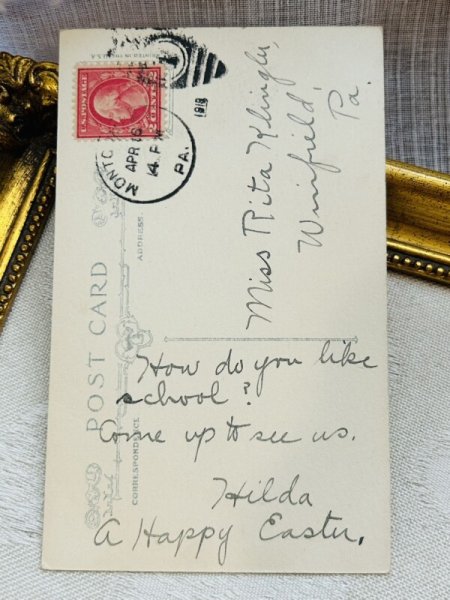 PRINTED IN U.S.A.
U.S. POSTAGE
2 CENTS 2
APR
4 P M
1918
PA.
POST CARD
ADDRESS
CORRESPONDENCE
Miss Rita Klingler,
Winfield,
Pa.
How do you like
school?
Come up to see us.
Hilda
A Happy Easter,